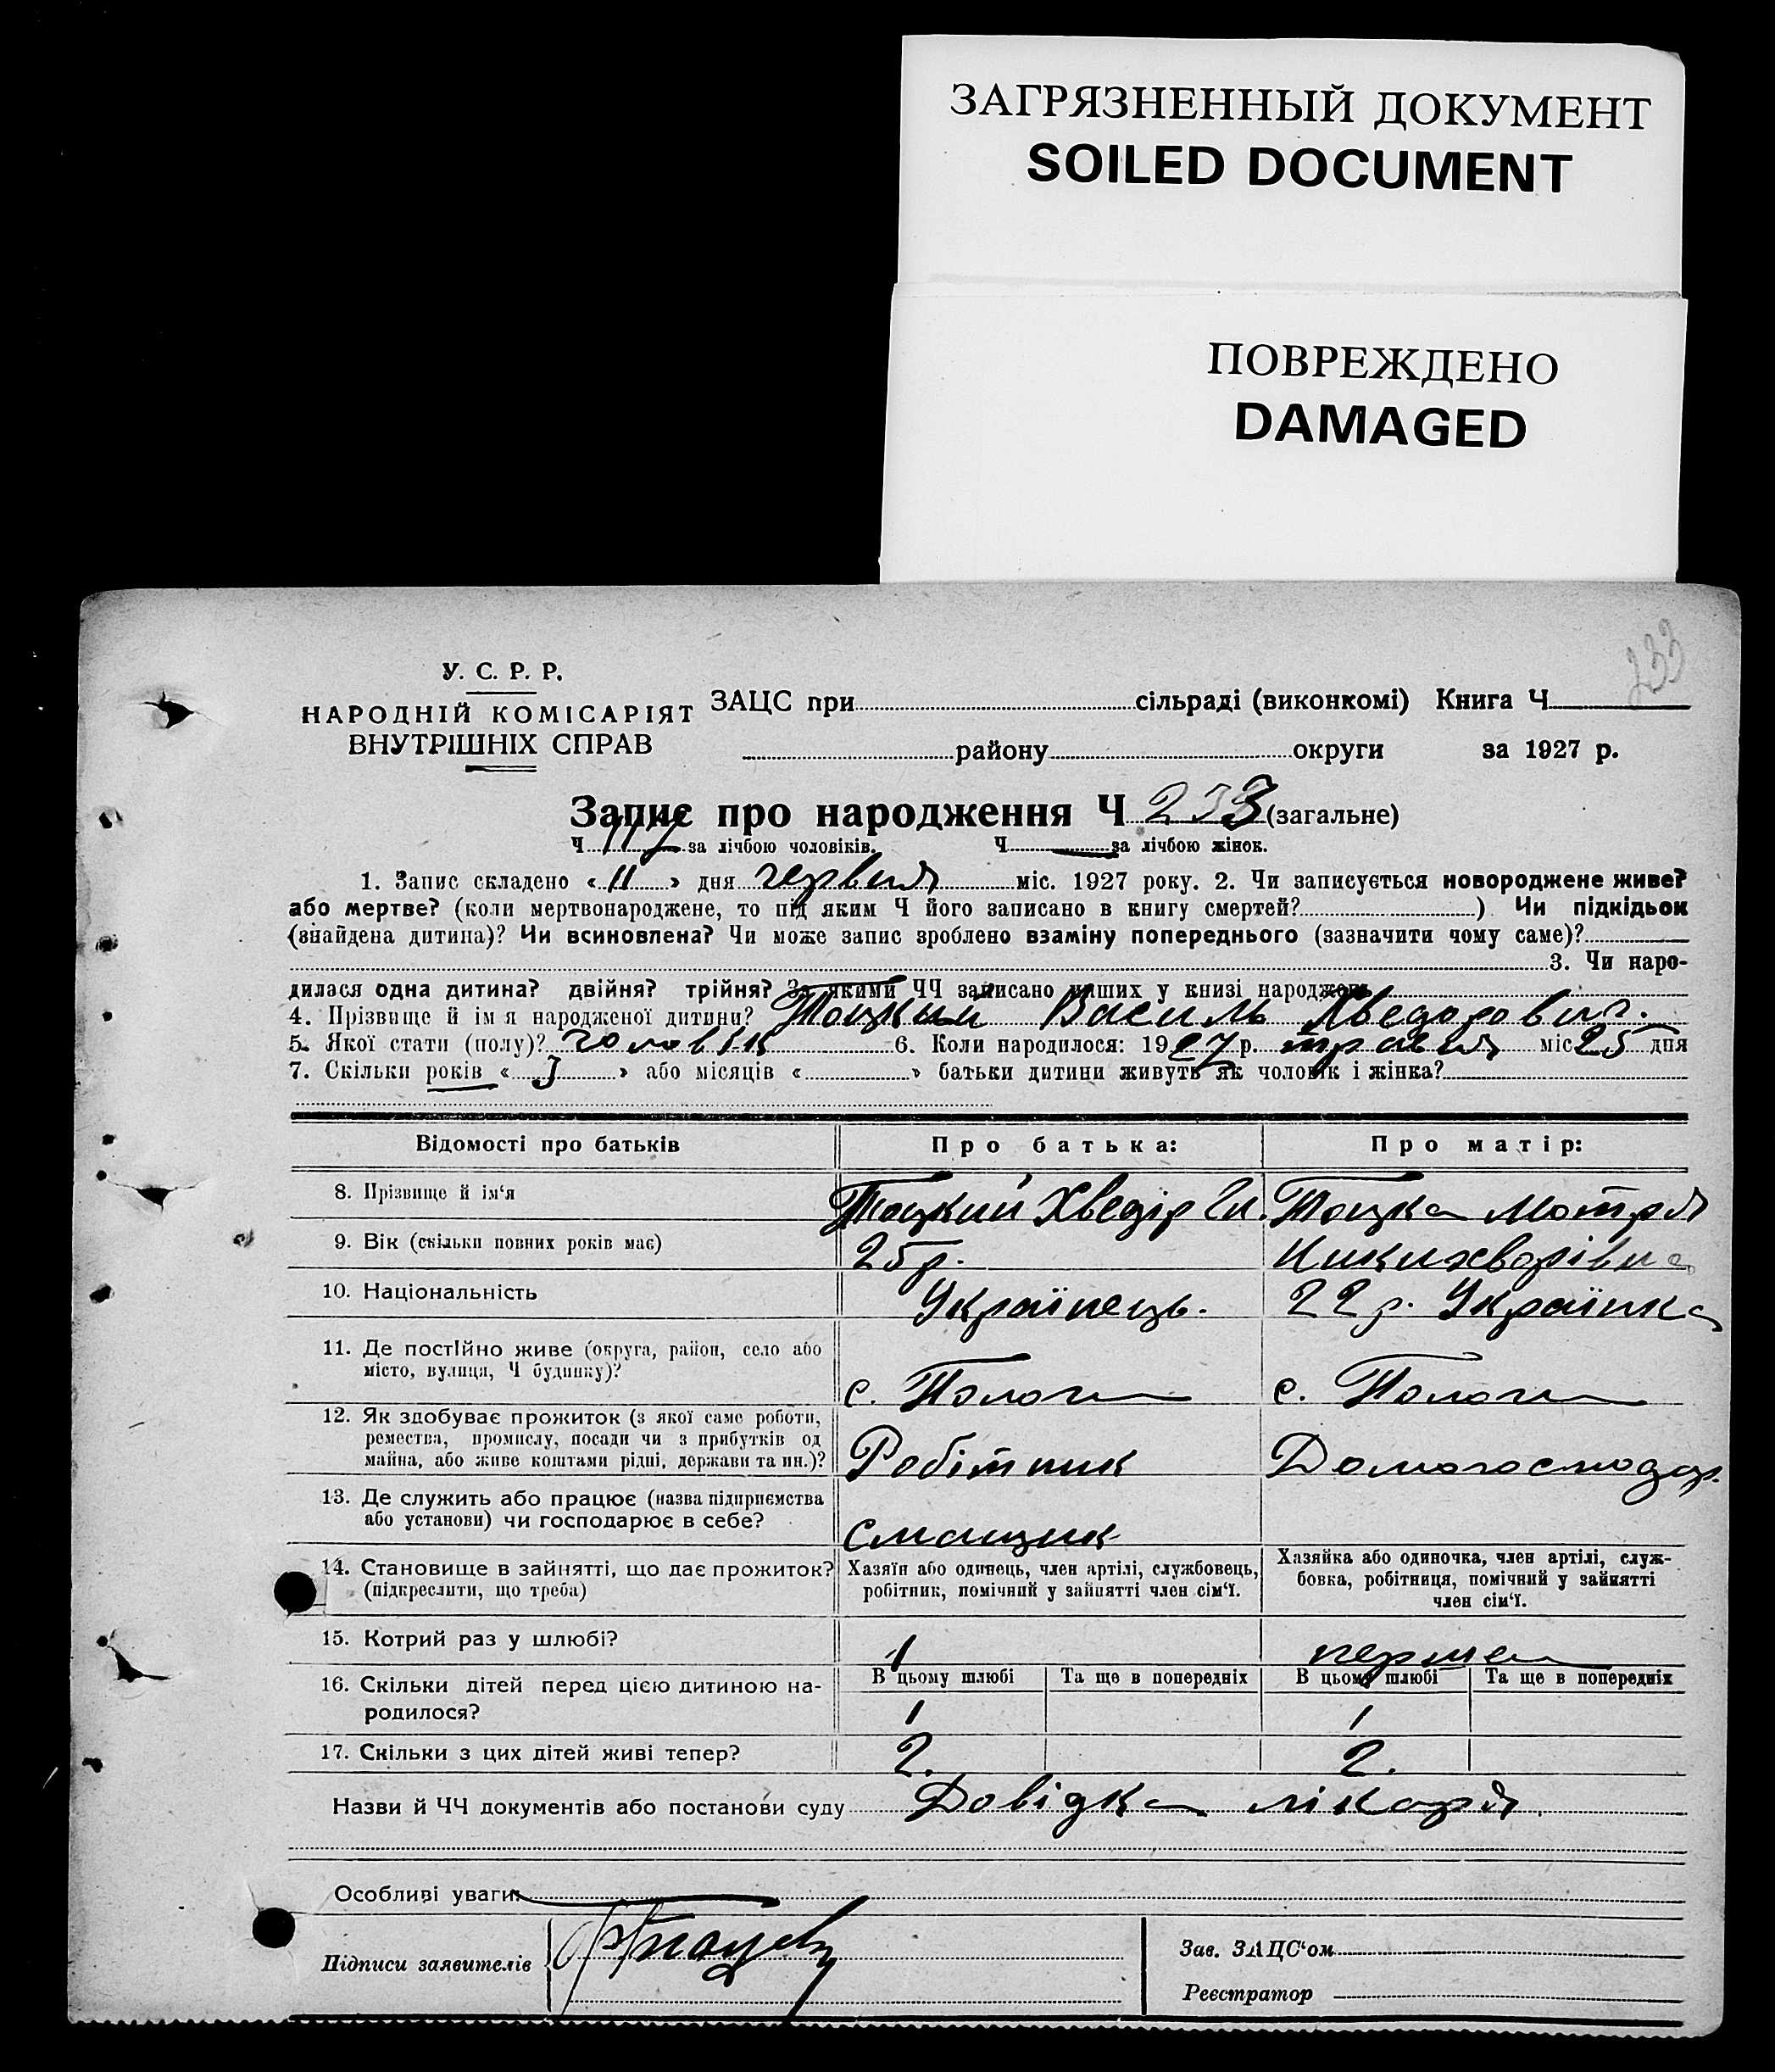 ЗАГРЯЗНЕННЫЙ ДОКУМЕНТ
SOILED DOCUMENT
ПОВРЕЖДЕНО
DAMAGED
233
У. С. Р. Р.
НАРОДНІЙ КОМІСАРІЯТ
ВНУТРІШНІХ СПРАВ
ЗАЦС при сільраді (виконкомі) Книга Ч
району округи за 1927 р.
Запис про народження Ч 233 (загальне)
Ч 117 за лічбою чоловіків. Ч — за лічбою жінок.
1. Запис складено « 11 » дня червня міс. 1927 року. 2. Чи записується новороджене живе?
або мертве? (коли мертвонароджене, то під яким Ч його записано в книгу смертей? ) Чи підкідьок
(знайдена дитина)? Чи всиновлена? Чи може запис зроблено взаміну попереднього (зазначити чому саме)?
3. Чи наро-
дилася одна дитина? двійня? трійня? За якими ЧЧ записано інших у книзі народжень
4. Прізвище й ім я народженої дитини? Тоцький Василь Хведорович.
5. Якої стати (полу)? чоловік 6. Коли народилося: 1927 р. травня міс 25 дня
7. Скільки років « » або місяців « » батьки дитини живуть як чоловік і жінка?
Відомості про батьків Про батька: Про матір:
8. Прізвище й ім‘я Тоцкий Хведір Тоцка Мотря
9. Вік (скільки повних років має) 25 р. Никихворівна
10. Національність Українець. 22 р. Українка
11. Де постійно живе (округа, район, село або
місто, вулиця, Ч будинку)? с. Пологи с. Пологи
12. Як здобуває прожиток (з якої саме роботи,
ремества, промислу, посади чи з прибутків од
майна, або живе коштами рідні, держави та ин.)? Робітник Домогосподар.
13. Де служить або працює (назва підприємства
або установи) чи господарює в себе? смащик
14. Становище в зайнятті, що дає прожиток?
(підкреслити, що треба)
Хазяїн або одинець, член артілі, службовець,
робітник, помічний у зайнятті член сім‘ї.
Хазяйка або одиночка, член артілі, служ-
бовка, робітниця, помічний у зайнятті
член сім‘ї.
15. Котрий раз у шлюбі? 1
16. Скільки дітей перед цією дитиною на-
родилося?
В цьому шлюбі Та ще в попередніх В цьому шлюбі Та ще в попередніх
1 1
17. Скільки з цих дітей живі тепер? 2. 2.
Назви й ЧЧ документів або постанови суду Довідка лікаря.
Особливі уваги:
Підписи заявителів
Зав. ЗАЦС‘ом
Реєстратор